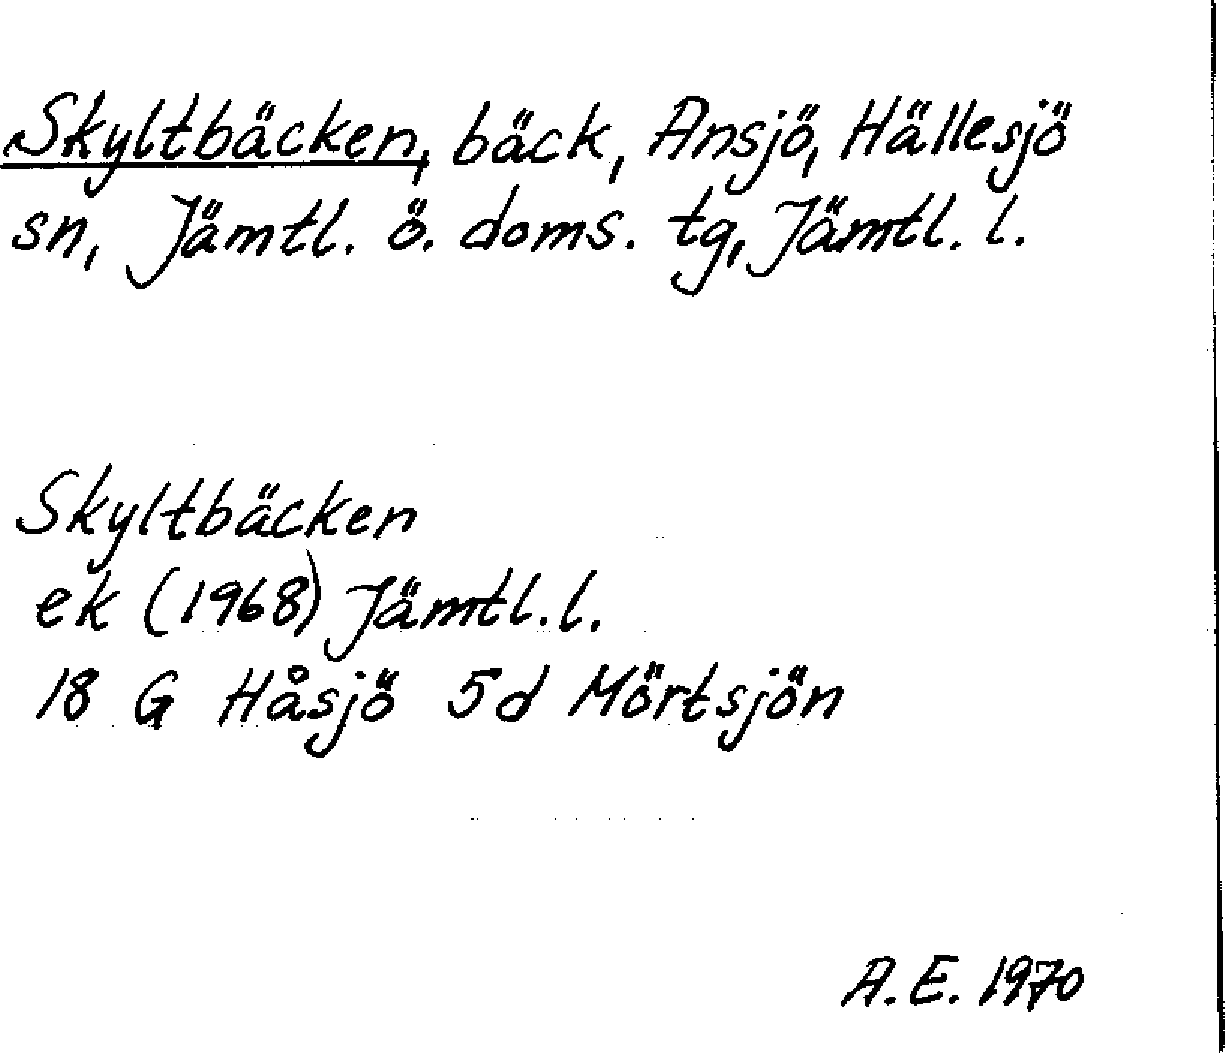 Skyltbäcken, bäck, Ansjö, Hällesjö
sn, Jämtl. ö. doms. tg, Jämtl. l.
Skyltbäcken
ek (1968) Jämtl. l.
18 G Håsjö 5d Mörtsjön
A. E. 1970